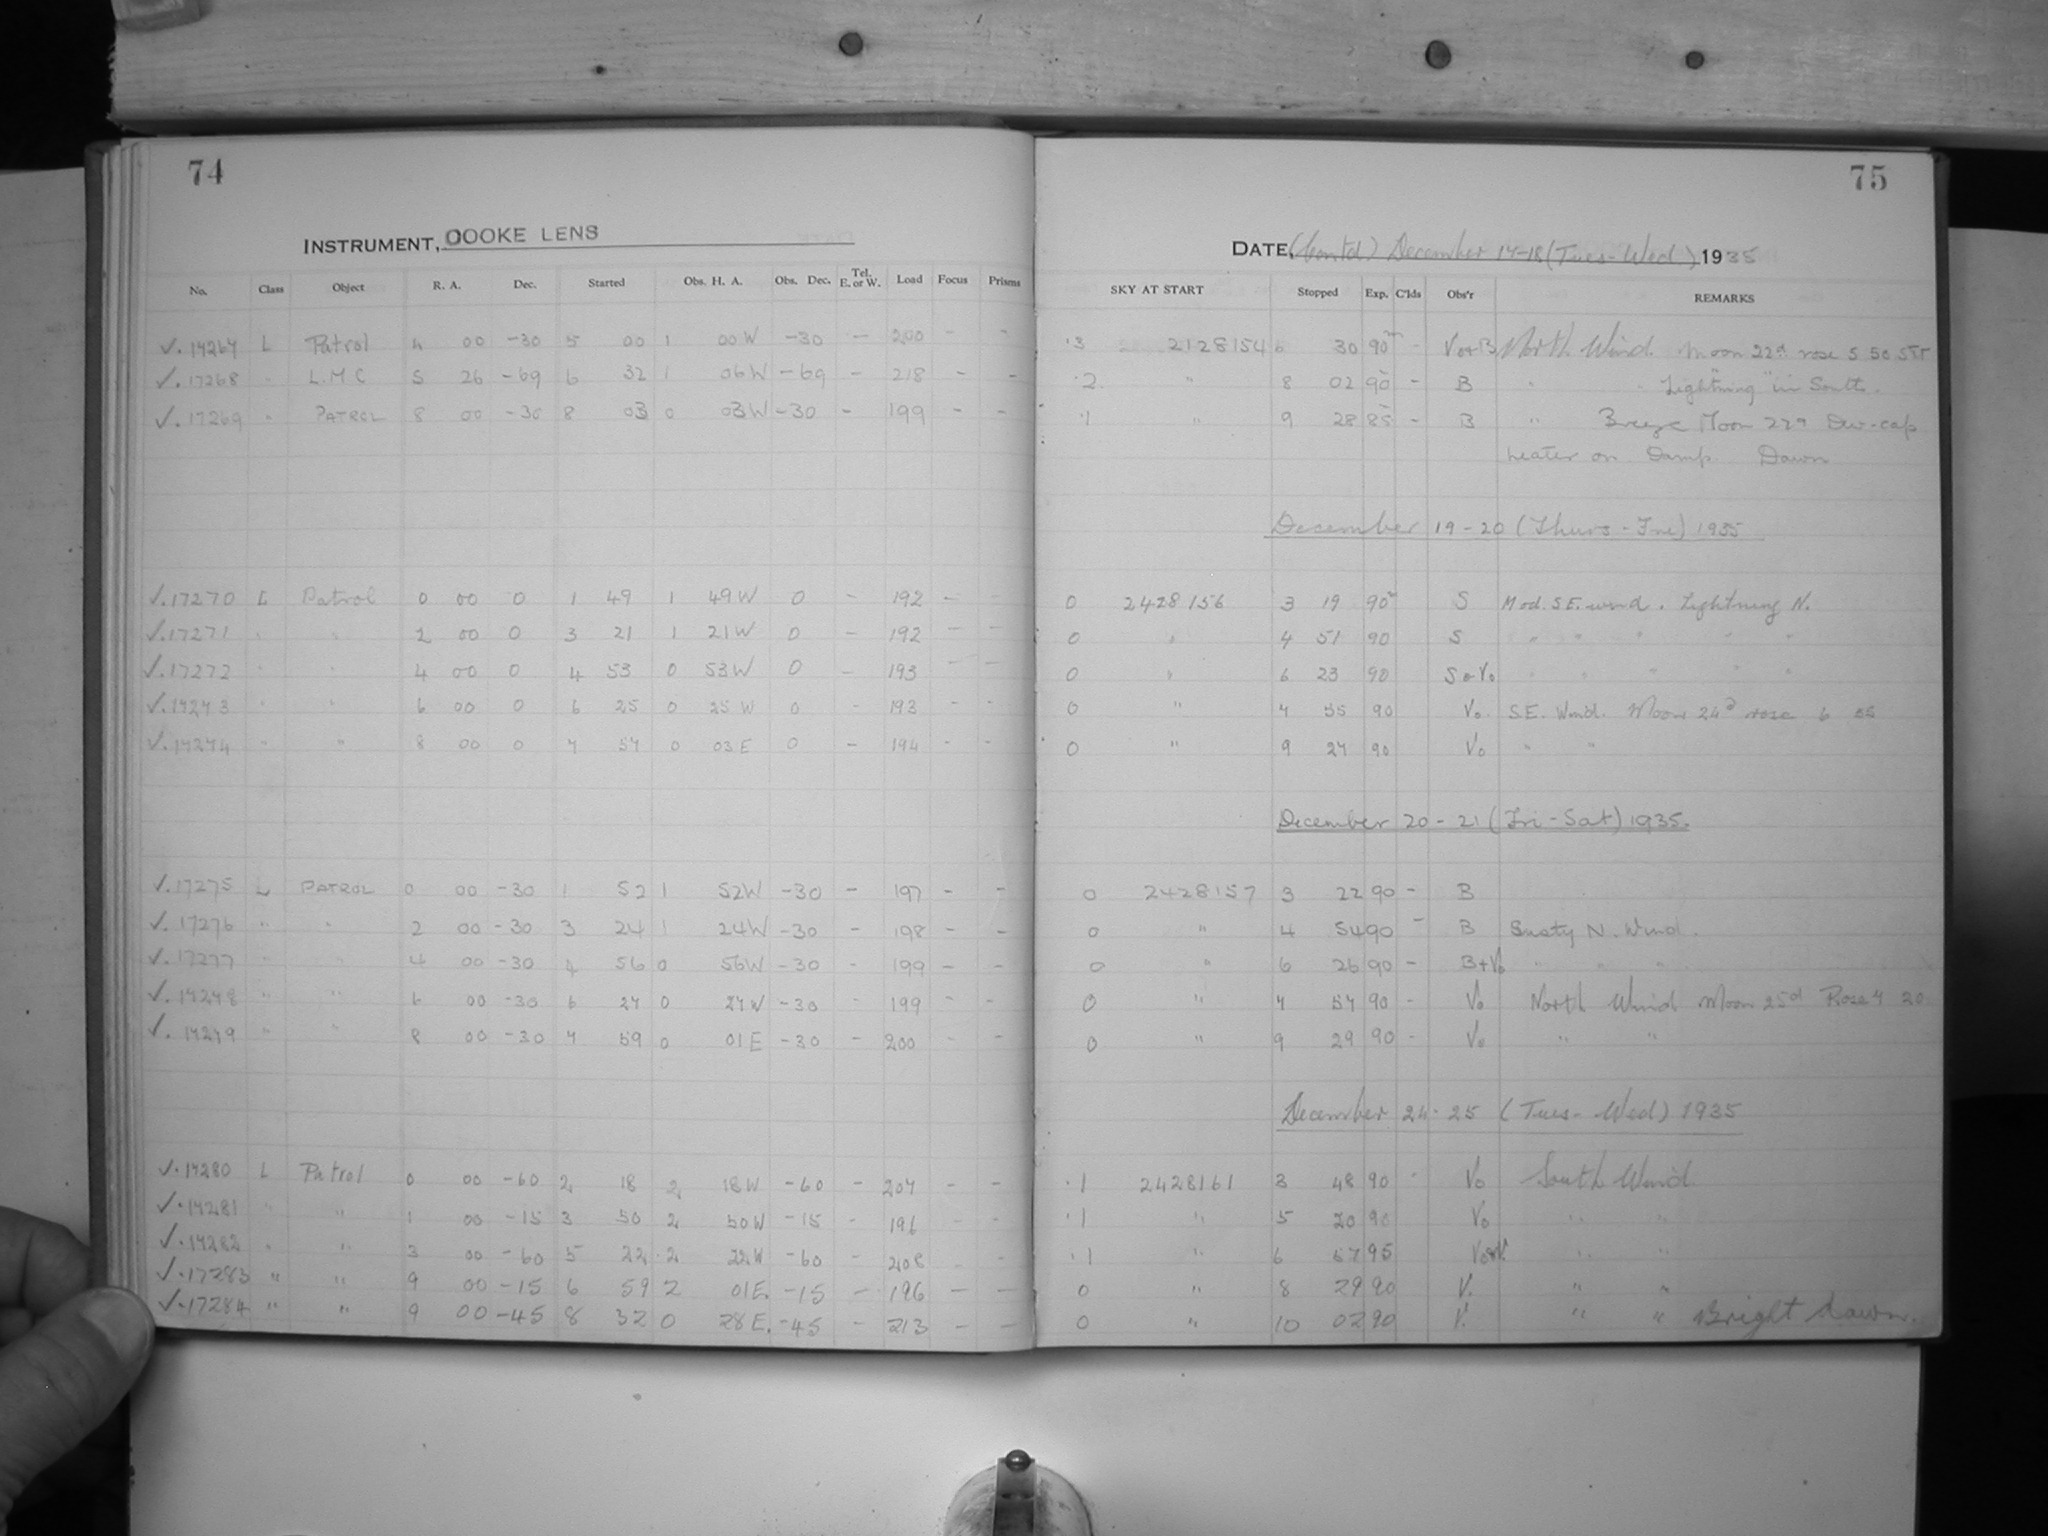 74
INSTRUMENT, COOKE LENS
No. Class Object R. A. Dec. Started Obs. H. A. Obs. Dec. Tel. E. or W. Load Focus Prisms
√. 17267 L Patrol 4 00 -30 5 00 1 00 W -30 - 200 - -
√. 17268 " L.M C 5 26 -69 6 32 1 06 W -69 - 218 - -
√. 17269 " PATROL 8 00 -30 8 03 0 03 W -30 - 199 - -
√. 17270 L Patrol 0 00 0 1 49 1 49 W 0 - 192 - -
√. 17271 " " 2 00 0 3 21 1 21 W 0 - 192 - -
√. 17272 " " 4 00 0 4 53 0 53 W 0 - 193 - -
√. 17273 " " 6 00 0 6 25 0 25 W 0 - 193 - -
√. 17274 " " 8 00 0 7 57 0 03 E 0 - 194 - -
√. 17275 L PATROL 0 00 -30 1 52 1 52 W -30 - 197 - -
√. 17276 " " 2 00 -30 3 24 1 24 W -30 - 198 - -
√. 17277 " " 4 00 -30 4 56 0 56 W -30 - 199 - -
√. 17278 " " 6 00 -30 6 27 0 27 W -30 - 199 - -
√. 17279 " " 8 00 -30 7 59 0 01 E -30 - 200 - -
√. 17280 L Patrol 0 00 -60 2 18 2 18 W -60 - 207 - -
√. 17281 " " 1 00 -15 3 50 2 50 W -15 - 196 - -
√. 17282 " " 3 00 -60 5 22 2 22 W -60 - 208 - -
√. 17283 " " 9 00 -15 6 59 2 01 E. -15 - 196 - -
√. 17284 " " 9 00 -45 8 32 0 28 E. -45 - 213 - -
75
DATE, (Contd) December 17-18 (Tues-Wed) 1935
SKY AT START Stopped Exp. C'lds Obs'r REMARKS
.3 2128154 6 30 90m - Vo+B North Wind. Moon 22d rose 5 50 ST
.2 " 8 02 90 - B " " Lightning in South.
.1 " 9 28 85 - B " Breeze Moon 22d Dew-cap
heater on Damp. Dawn
December 19-20 (Thurs-Fri) 1935
0 2428156 3 19 90m S Mod. S.E. wind. Lightning N.
0 " 4 51 90 S " " " " "
0 " 6 23 90 S+Vo " " " " "
0 " 7 55 90 Vo. S.E. Wind. Moon 24d rose 6
0 " 9 27 90 Vo " "
December 20-21 (Fri-Sat) 1935.
0 2428157 3 22 90 - B
0 " 4 54 90 - B Gusty N. Wind.
0 " 6 26 90 - B+Vo " " "
0 " 7 57 90 - Vo North Wind Moon 25d Rose 7 20
0 " 9 29 90 - Vo " "
December 24-25 (Tues-Wed) 1935
.1 2428161 3 48 90 Vo South Wind
.1 " 5 20 90 Vo " "
.1 " 6 57 95 Vo+V. " "
0 " 8 29 90 V. " "
0 " 10 02 90 V. " " Bright Dawn.